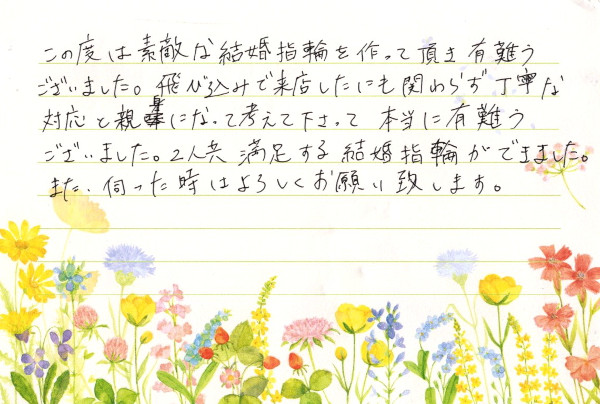 この度は素敵な結婚指輪を作って頂き有難う
ございました。飛び込みで来店したにも関わらず丁寧な
対応と親身になって考えて下さって本当に有難う
ございました。2人共満足する結婚指輪ができました。
また、伺った時はよろしくお願い致します。